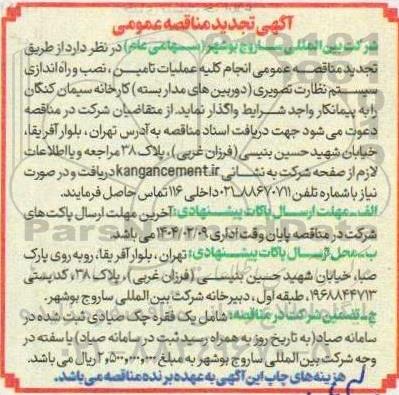 آگهی تجدید مناقصه عمومی
شرکت بین المللی ساروج بوشهر (سهامی عام) در نظر دارد از طریق
تجدید مناقصه عمومی انجام کلیه عملیات تامین ، نصب و راه اندازی
سیستم نظارت تصویری (دوربین های مدار بسته) کارخانه سیمان کنگان
را به پیمانکار واجد شرایط واگذار نماید. از متقاضیان شرکت در مناقصه
دعوت می شود جهت دریافت اسناد مناقصه به آدرس تهران ، بلوار آفریقا،
خیابان شهید حسین بنیسی (فرزان غربی) ، پلاک ۳۸ مراجعه و یا اطلاعات
لازم از صفحه شرکت به نشانی kangancement.ir دریافت و در صورت
نیاز با شماره تلفن ۸۸۶۷۰۷۱۱-۰۲۱ داخلی ۱۱۶ تماس حاصل فرمایند.
الف-مهلت ارسال پاکات پیشنهادی: آخرین مهلت ارسال پاکت های
شرکت در مناقصه پایان وقت اداری ۱۴۰۴/۰۲/۰۹ می باشد.
ب-محل ارسال پاکات پیشنهادی: تهران ، بلوار آفریقا، روبه روی پارک
صبا، خیابان شهید حسین بنیسی (فرزان غربی) ، پلاک ۳۸، کدپستی
۱۹۶۸۸۴۴۷۱۳، طبقه اول ، دبیرخانه شرکت بین المللی ساروج بوشهر.
ج-تضمین شرکت در مناقصه: شامل یک فقره چک صیادی ثبت شده در
سامانه صیاد (به تاریخ روز به همراه رسید ثبت در سامانه صیاد) یا سفته در
وجه شرکت بین المللی ساروج بوشهر به مبلغ ۲,۵۰۰,۰۰۰,۰۰۰ ریال می باشد.
هزینه های چاپ این آگهی به عهده برنده مناقصه می باشد.